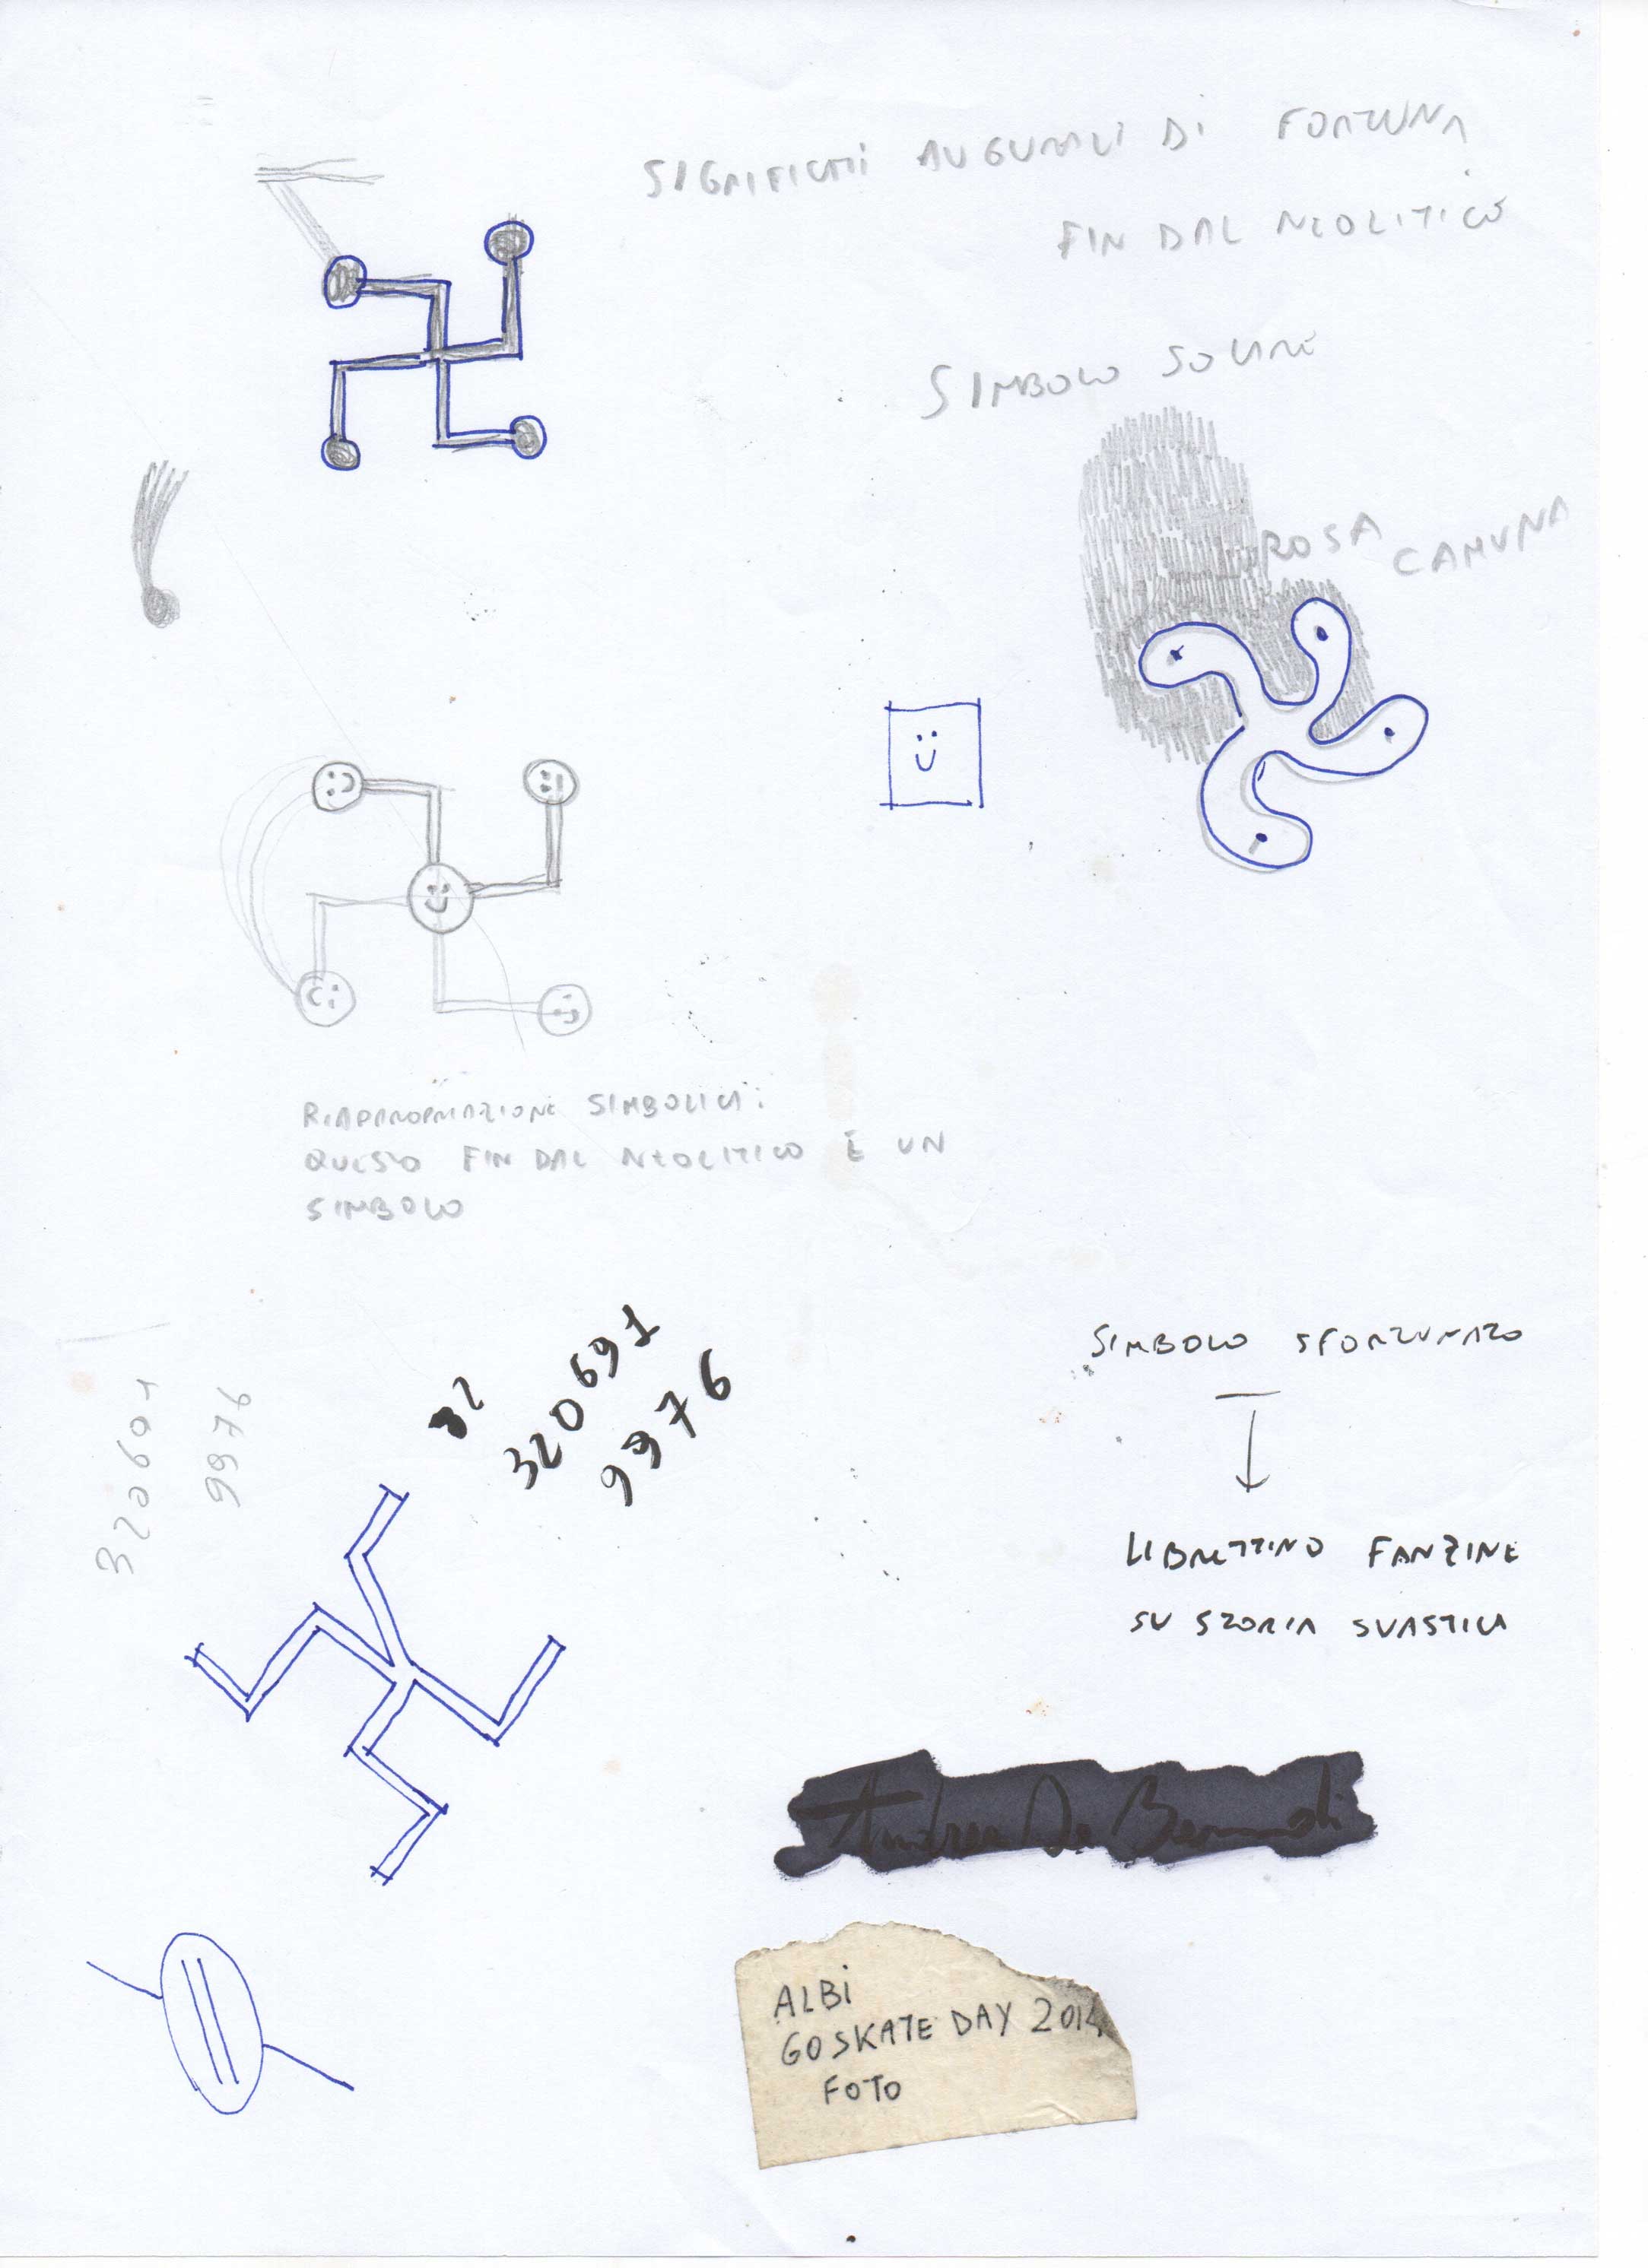 SIGNIFICATI AUGURALI DI FORTUNA
FIN DAL NEOLITICO
SIMBOLO SOLARE
ROSA CAMUNA
RIAPPROPRIAZIONE SIMBOLICA:
QUESTO FIN DAL NEOLITICO È UN
SIMBOLO
32
320691
9976
320691
9976
SIMBOLO SFORTUNATO
LIBRETTINO FANZINE
SU STORIA SVASTICA
ALBI
GO SKATE DAY 2014
FOTO